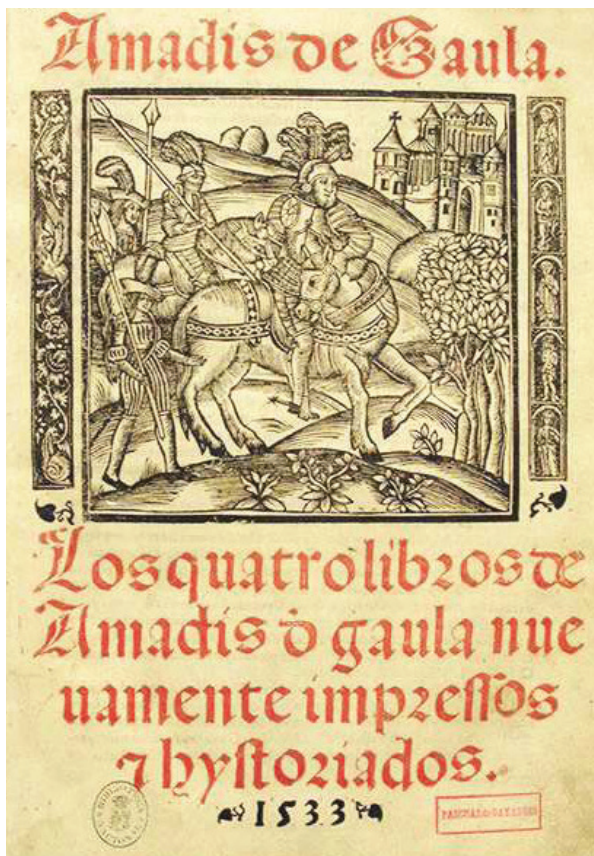 Amadis de Gaula.
Los quatro libros de
Amadis d̄ gaula nue
uamente impressos
⁊ hystoriados.
1533
BIBLIOTECA NACIONAL
PASCUAL DE GAYANGOS